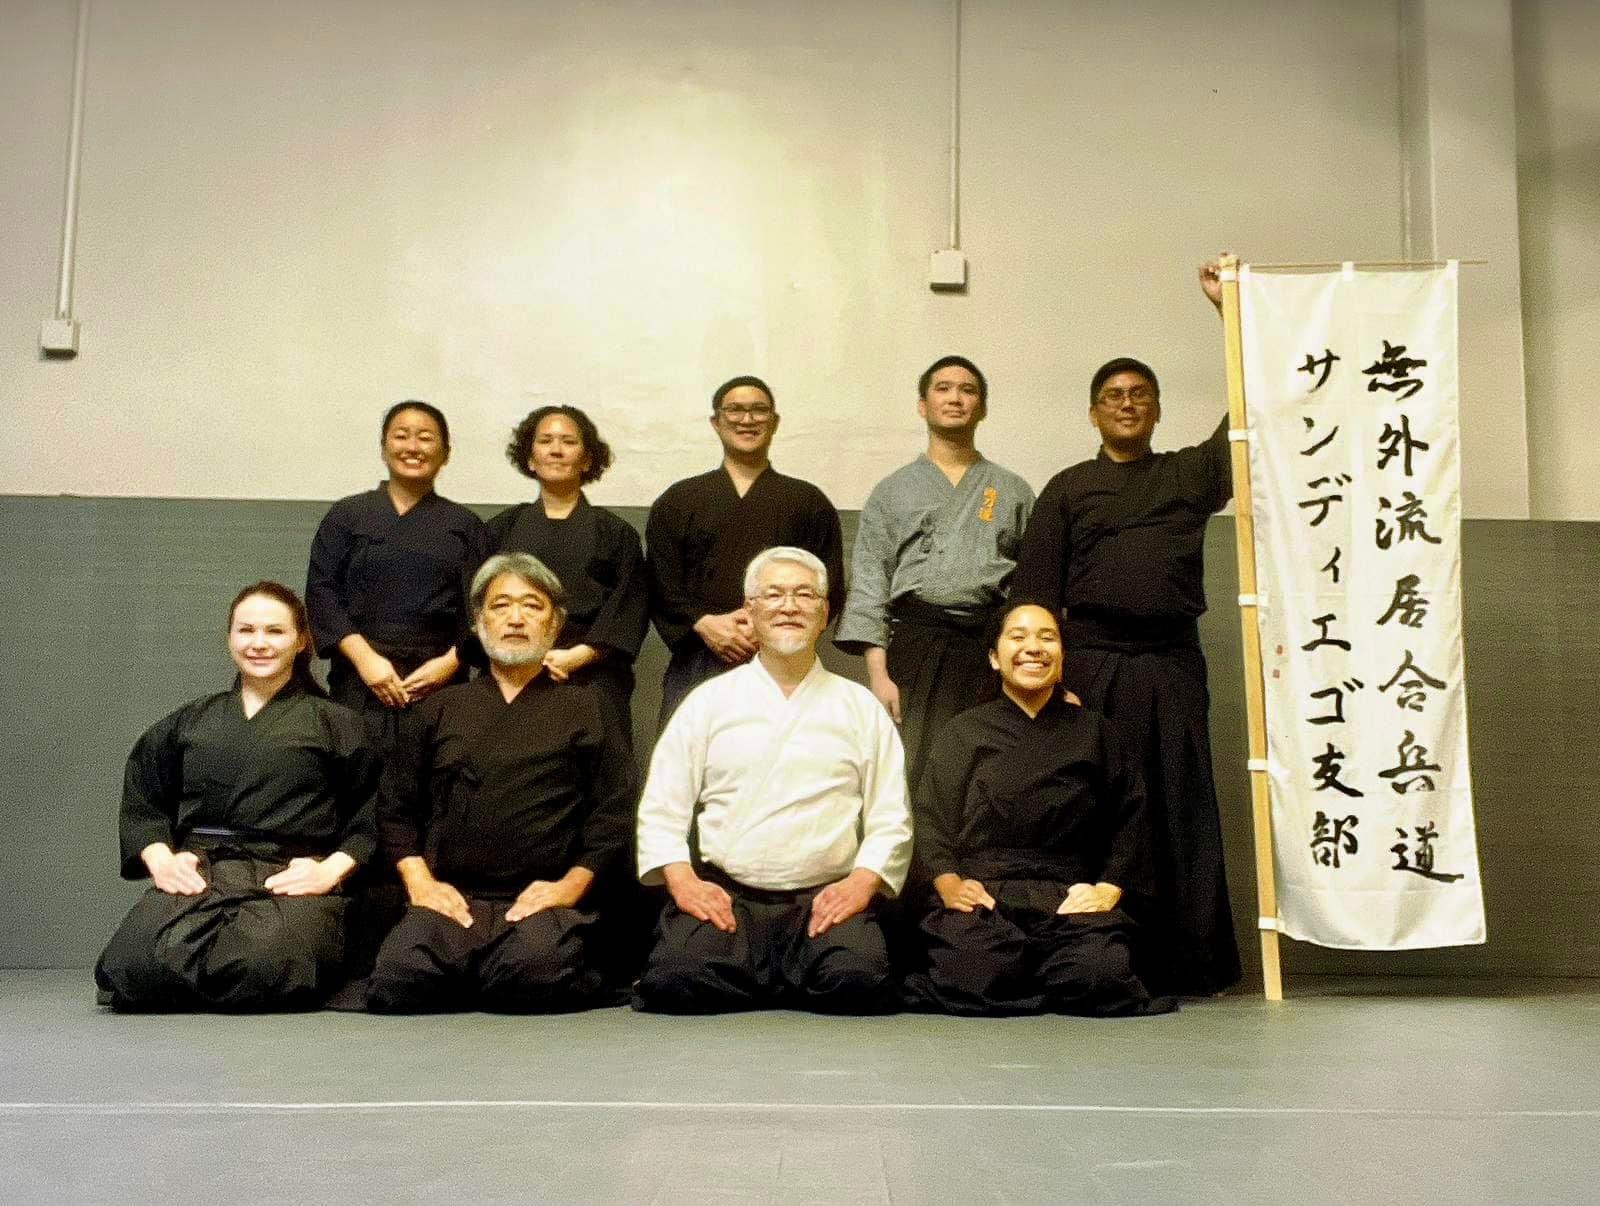 無外流居合兵道
サンディエゴ支部